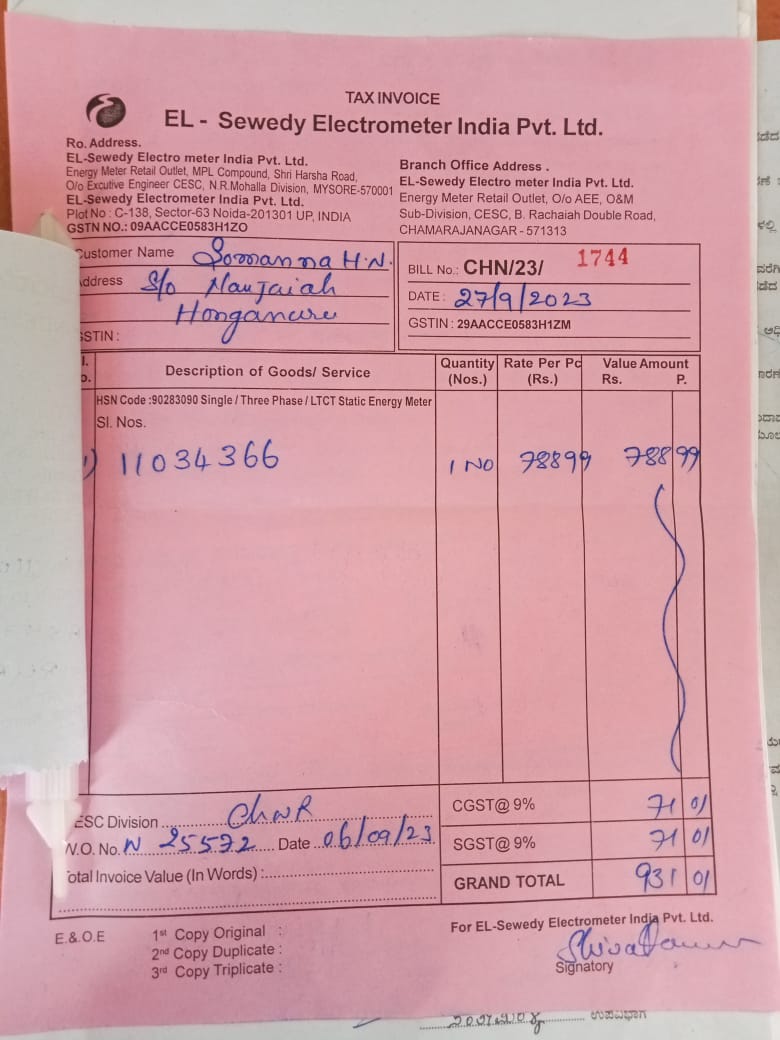 TAX INVOICE
EL - Sewedy Electrometer India Pvt. Ltd.
Ro. Address.
EL-Sewedy Electro meter India Pvt. Ltd.
Energy Meter Retail Outlet, MPL Compound, Shri Harsha Road,
O/o Excutive Engineer CESC, N.R.Mohalla Division, MYSORE-570001
EL-Sewedy Electrometer India Pvt. Ltd.
Plot No : C-138, Sector-63 Noida-201301 UP, INDIA
GSTN NO.: 09AACCE0583H1ZO
Branch Office Address .
EL-Sewedy Electro meter India Pvt. Ltd.
Energy Meter Retail Outlet, O/o AEE, O&M
Sub-Division, CESC, B. Rachaiah Double Road,
CHAMARAJANAGAR - 571313
Customer Name Somanna H.N.
Address S/o Manjaiah
Honganuru
GSTIN :
BILL No.: CHN/23/ 1744
DATE : 27/9/2023
GSTIN : 29AACCE0583H1ZM
Description of Goods/ Service Quantity (Nos.) Rate Per Pc (Rs.) Value Amount Rs. P.
HSN Code :90283090 Single / Three Phase / LTCT Static Energy Meter
Sl. Nos.
1) 11034366 1 NO 78899 788 99
ESC Division CHNR
W.O. No. N 25572 Date 06/09/23
Total Invoice Value (In Words) :
CGST@ 9% 71 01
SGST@ 9% 71 01
GRAND TOTAL 931 01
E.&.O.E
1st Copy Original :
2nd Copy Duplicate :
3rd Copy Triplicate :
For EL-Sewedy Electrometer India Pvt. Ltd.
Signatory